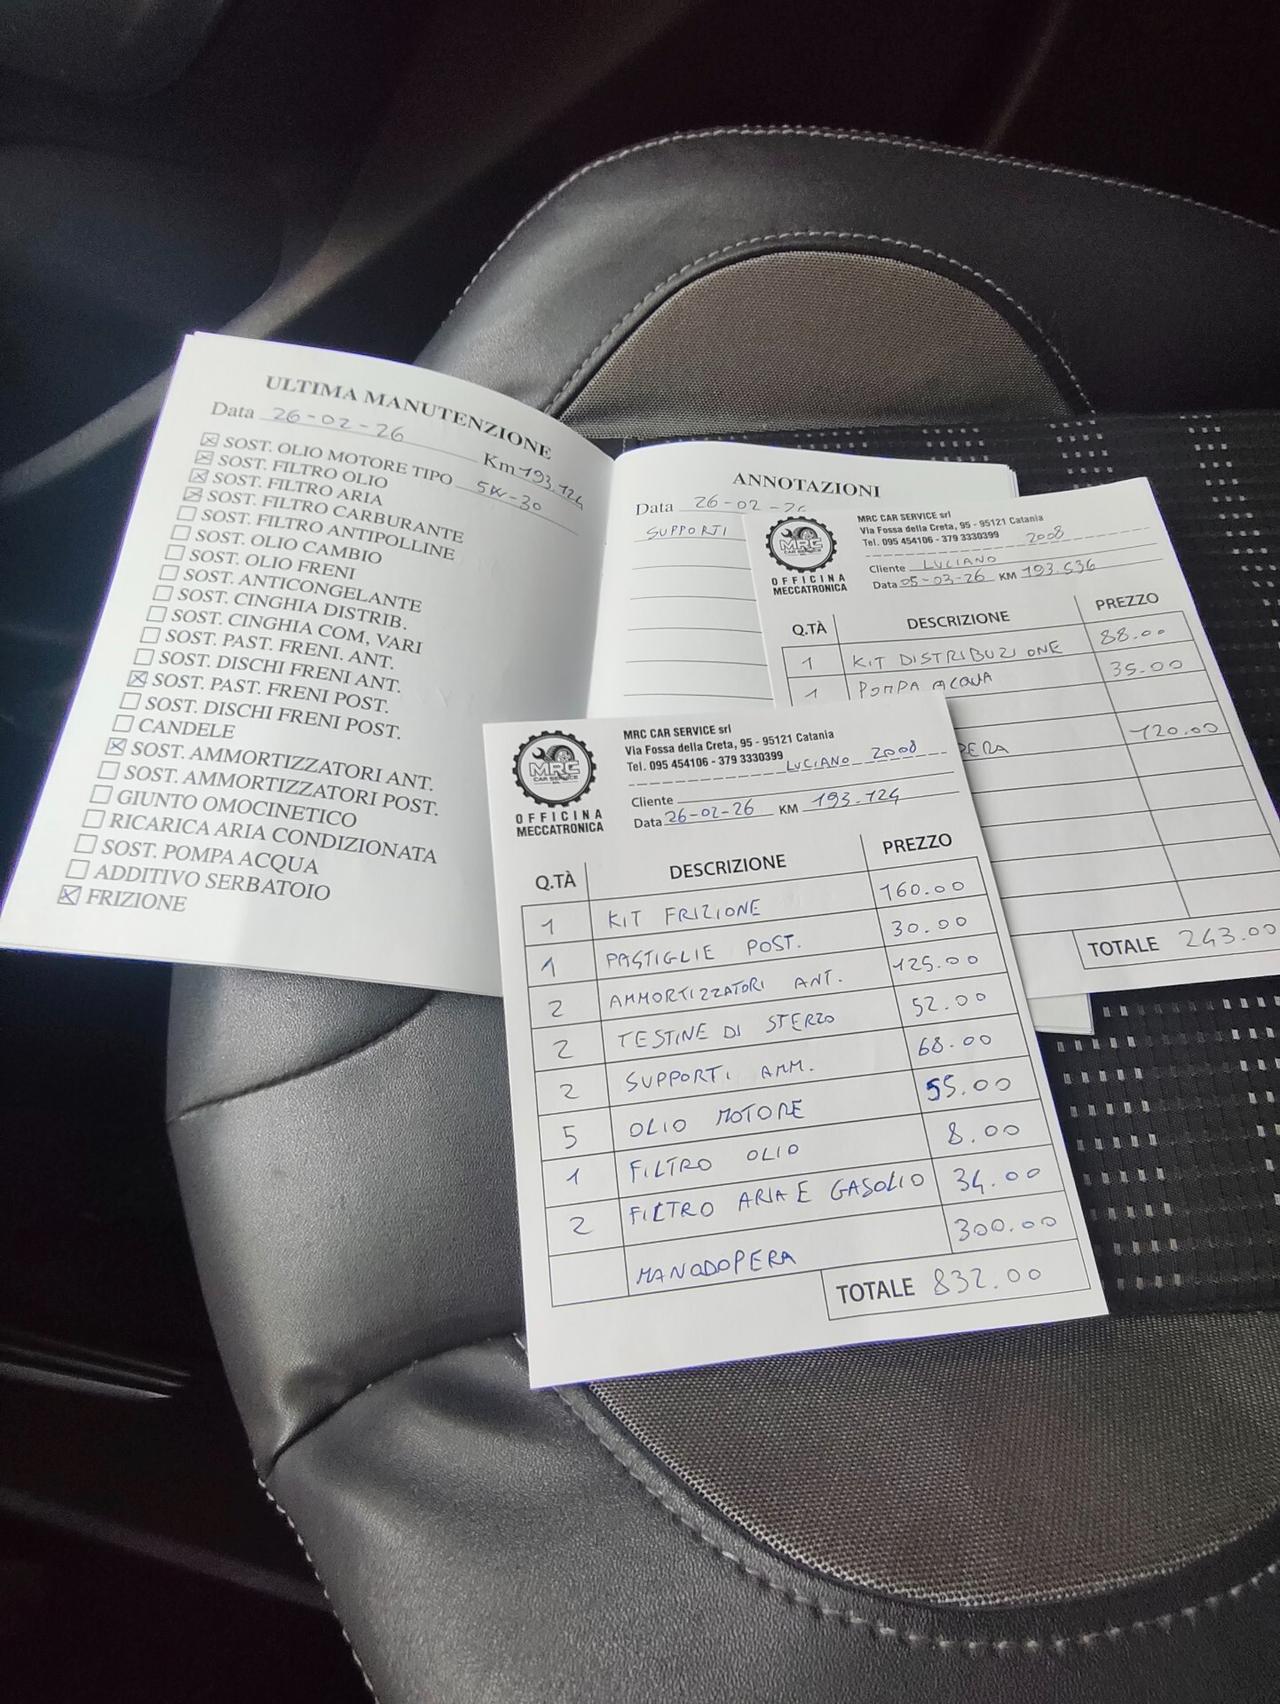 ULTIMA MANUTENZIONE
Data 26-02-26 Km 193.124
SOST. OLIO MOTORE TIPO 5W-30
SOST. FILTRO OLIO
SOST. FILTRO ARIA
SOST. FILTRO CARBURANTE
SOST. FILTRO ANTIPOLLINE
SOST. OLIO CAMBIO
SOST. OLIO FRENI
SOST. ANTICONGELANTE
SOST. CINGHIA DISTRIB.
SOST. CINGHIA COM, VARI
SOST. PAST. FRENI. ANT.
SOST. DISCHI FRENI ANT.
SOST. PAST. FRENI POST.
SOST. DISCHI FRENI POST.
CANDELE
SOST. AMMORTIZZATORI ANT.
SOST. AMMORTIZZATORI POST.
GIUNTO OMOCINETICO
RICARICA ARIA CONDIZIONATA
SOST. POMPA ACQUA
ADDITIVO SERBATOIO
FRIZIONE
ANNOTAZIONI
Data 26-02-26
SUPPORTI
MRC CAR SERVICE srl
Via Fossa della Creta, 95 - 95121 Catania
Tel. 095 454106 - 379 3330399
2008
MRC
CAR SERVICE
OFFICINA
MECCATRONICA
Cliente LUCIANO
Data 05-03-26 KM 193.536
Q.TÀ DESCRIZIONE PREZZO
1 KIT DISTRIBUZIONE 88.00
1 POMPA ACQUA 35.00
PERA 120.00
TOTALE 243.00
MRC CAR SERVICE srl
Via Fossa della Creta, 95 - 95121 Catania
Tel. 095 454106 - 379 3330399
LUCIANO 2008
MRC
CAR SERVICE
OFFICINA
MECCATRONICA
Cliente
Data 26-02-26 KM 193.124
Q.TÀ DESCRIZIONE PREZZO
1 KIT FRIZIONE 160.00
1 PASTIGLIE POST. 30.00
2 AMMORTIZZATORI ANT. 125.00
2 TESTINE DI STERZO 52.00
2 SUPPORTI AMM. 68.00
5 OLIO MOTORE 55.00
1 FILTRO OLIO 8.00
2 FILTRO ARIA E GASOLIO 34.00
MANODOPERA 300.00
TOTALE 832.00